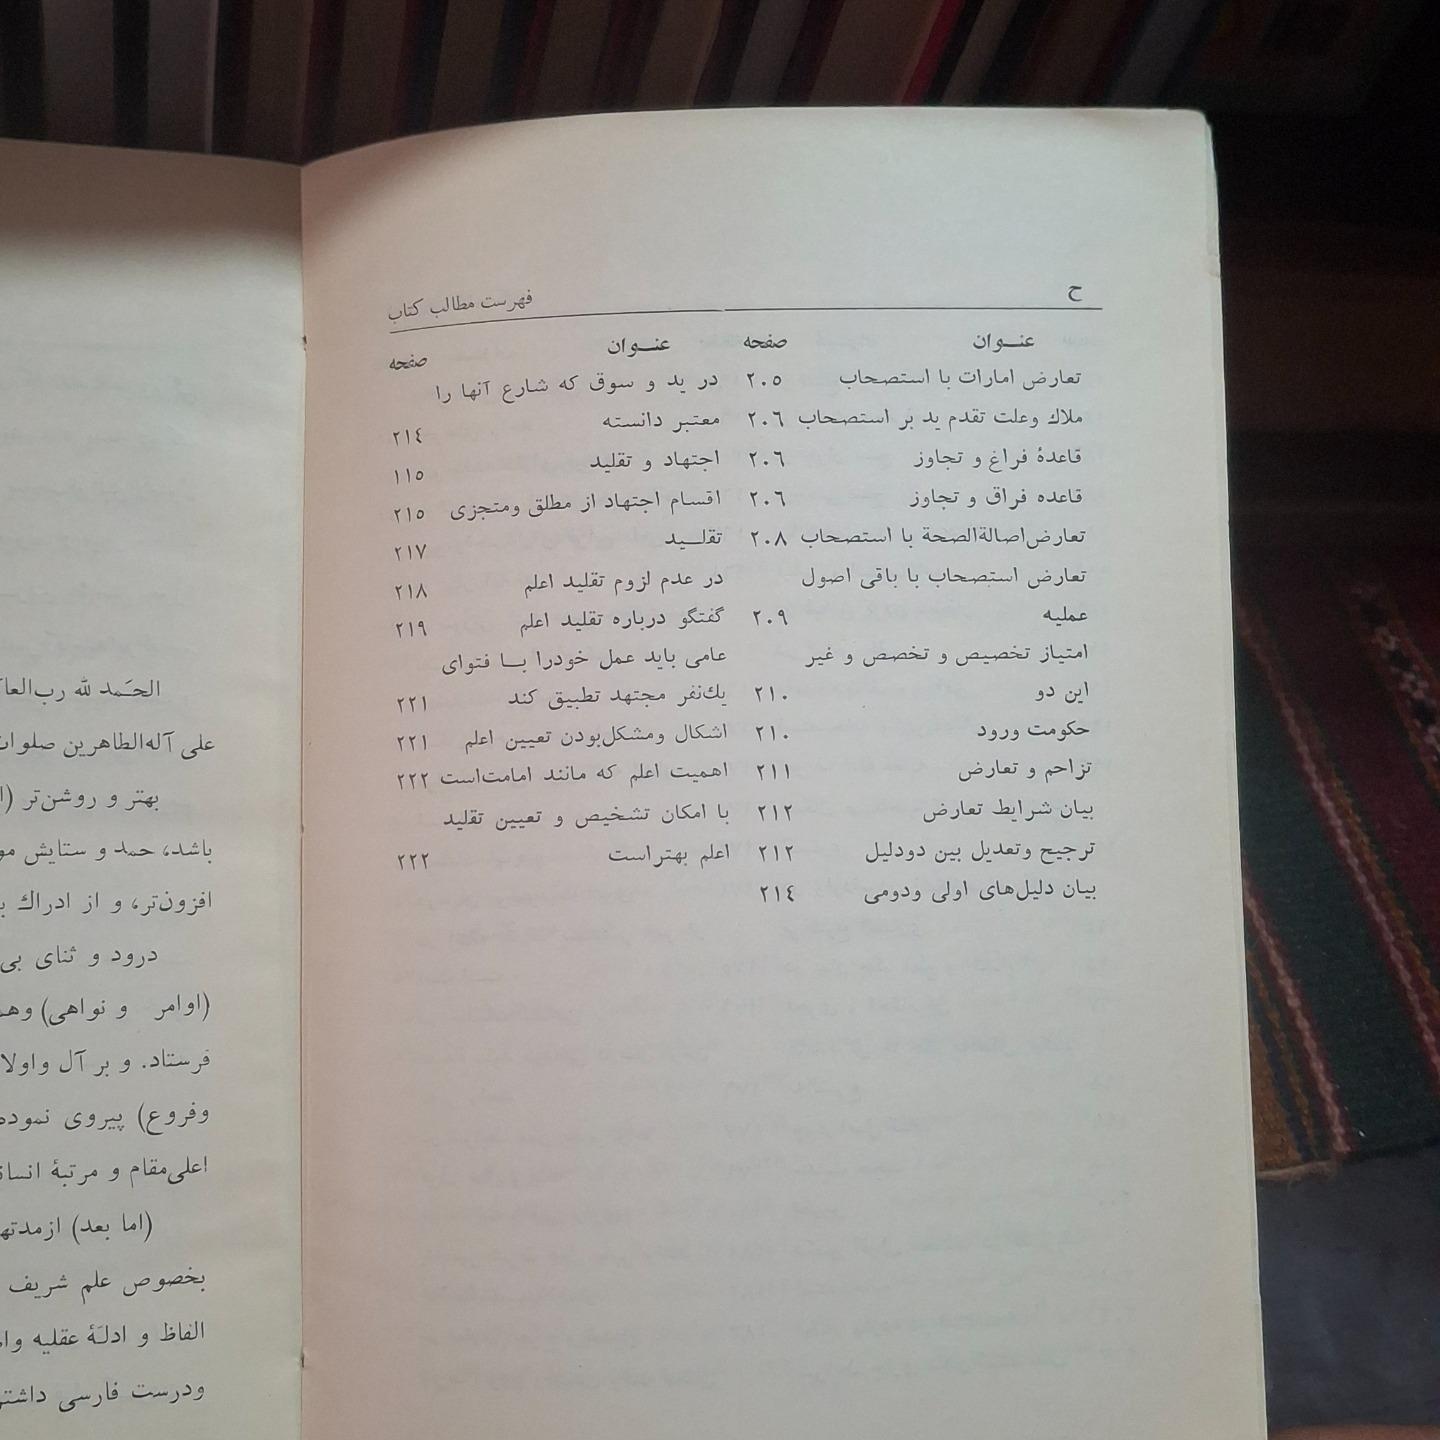 ح
فهرست مطالب کتاب
عنـوان صفحه
تعارض امارات با استصحاب ۲۰۵
ملاك وعلت تقدم ید بر استصحاب ۲۰٦
قاعدهٔ فراغ و تجاوز ۲۰٦
قاعده فراق و تجاوز ۲۰٦
تعارض‌اصالةالصحة با استصحاب ۲۰۸
تعارض استصحاب با باقی اصول
عملیه ۲۰۹
امتیاز تخصیص و تخصص و غیر
این دو ۲۱۰
حکومت ورود ۲۱۰
تزاحم و تعارض ۲۱۱
بیان شرایط تعارض ۲۱۲
ترجیح وتعدیل بین دودلیل ۲۱۲
بیان دلیل‌های اولی ودومی ۲۱٤
عنـوان صفحه
در ید و سوق که شارع آنها را
معتبر دانسته ۲۱٤
اجتهاد و تقلید ۱۱۵
اقسام اجتهاد از مطلق ومتجزی ۲۱۵
تقلـید ۲۱۷
در عدم لزوم تقلید اعلم ۲۱۸
گفتگو درباره تقلید اعلم ۲۱۹
عامی باید عمل خودرا بـا فتوای
یك‌نفر مجتهد تطبیق کند ۲۲۱
اشکال ومشکل‌بودن تعیین اعلم ۲۲۱
اهمیت اعلم که مانند امامت‌است ۲۲۲
با امکان تشخیص و تعیین تقلید
اعلم بهتر است ۲۲۲
الحَمد لله رب‌العا
علی آله‌الطاهرین صلوات
بهتر و روشن‌تر (ا
باشد، حمد و ستایش مو
افزون‌تر، و از ادراك ب
درود و ثنای بی
(اوامر و نواهی) وهم
فرستاد. و بر آل واولا
وفروع) پیروی نموده
اعلی‌مقام و مرتبهٔ انسان
(اما بعد) ازمدتها
بخصوص علم شریف
الفاظ و ادلهٔ عقلیه وا
ودرست فارسی داشتن